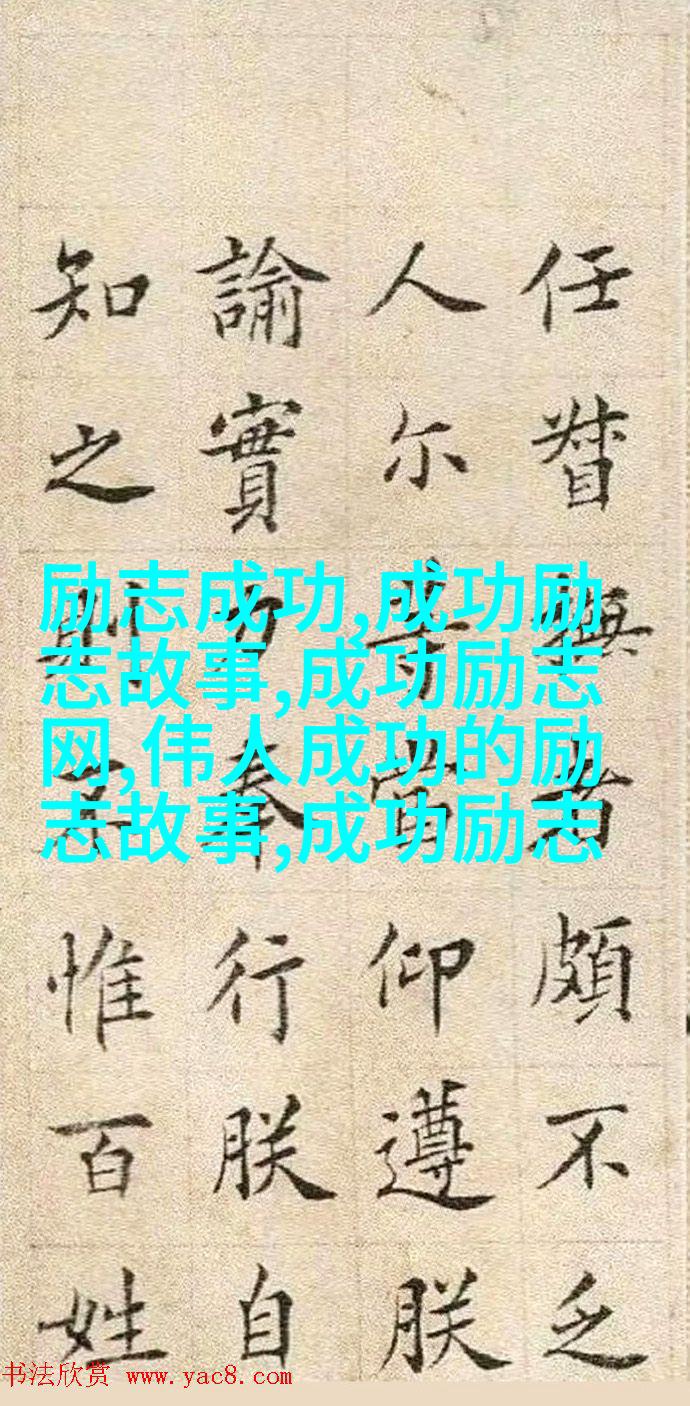 任督撫者頗不乏
人尔等當仰遵朕
諭實力奉行朕自
知之則不惟百姓
励志成功,成功励
志故事,成功励志
网,伟人成功的励
志故事,成功励志
书法欣赏 www.yac8.com